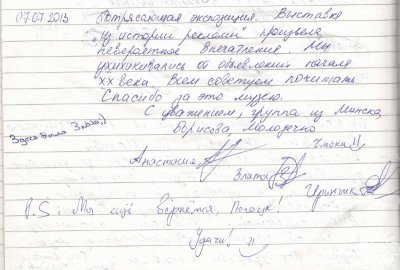 07.07.2013 Потрясающая экспозиция. Выставка
„из истории рекламы" произвела
невероятное впечатление. Мы
ухихикивались от объявлений начала
XX века. Всем советуем почитать.
Спасибо за это музею.
С уважением, группа из Минска,
Борисова, Молодечно
Здесь была Злата;)
Чмоки!!
Анастасия
Злата
Иринчик
P.S. Мы ещё вернёмся, Полоцк!
Удачи! =)